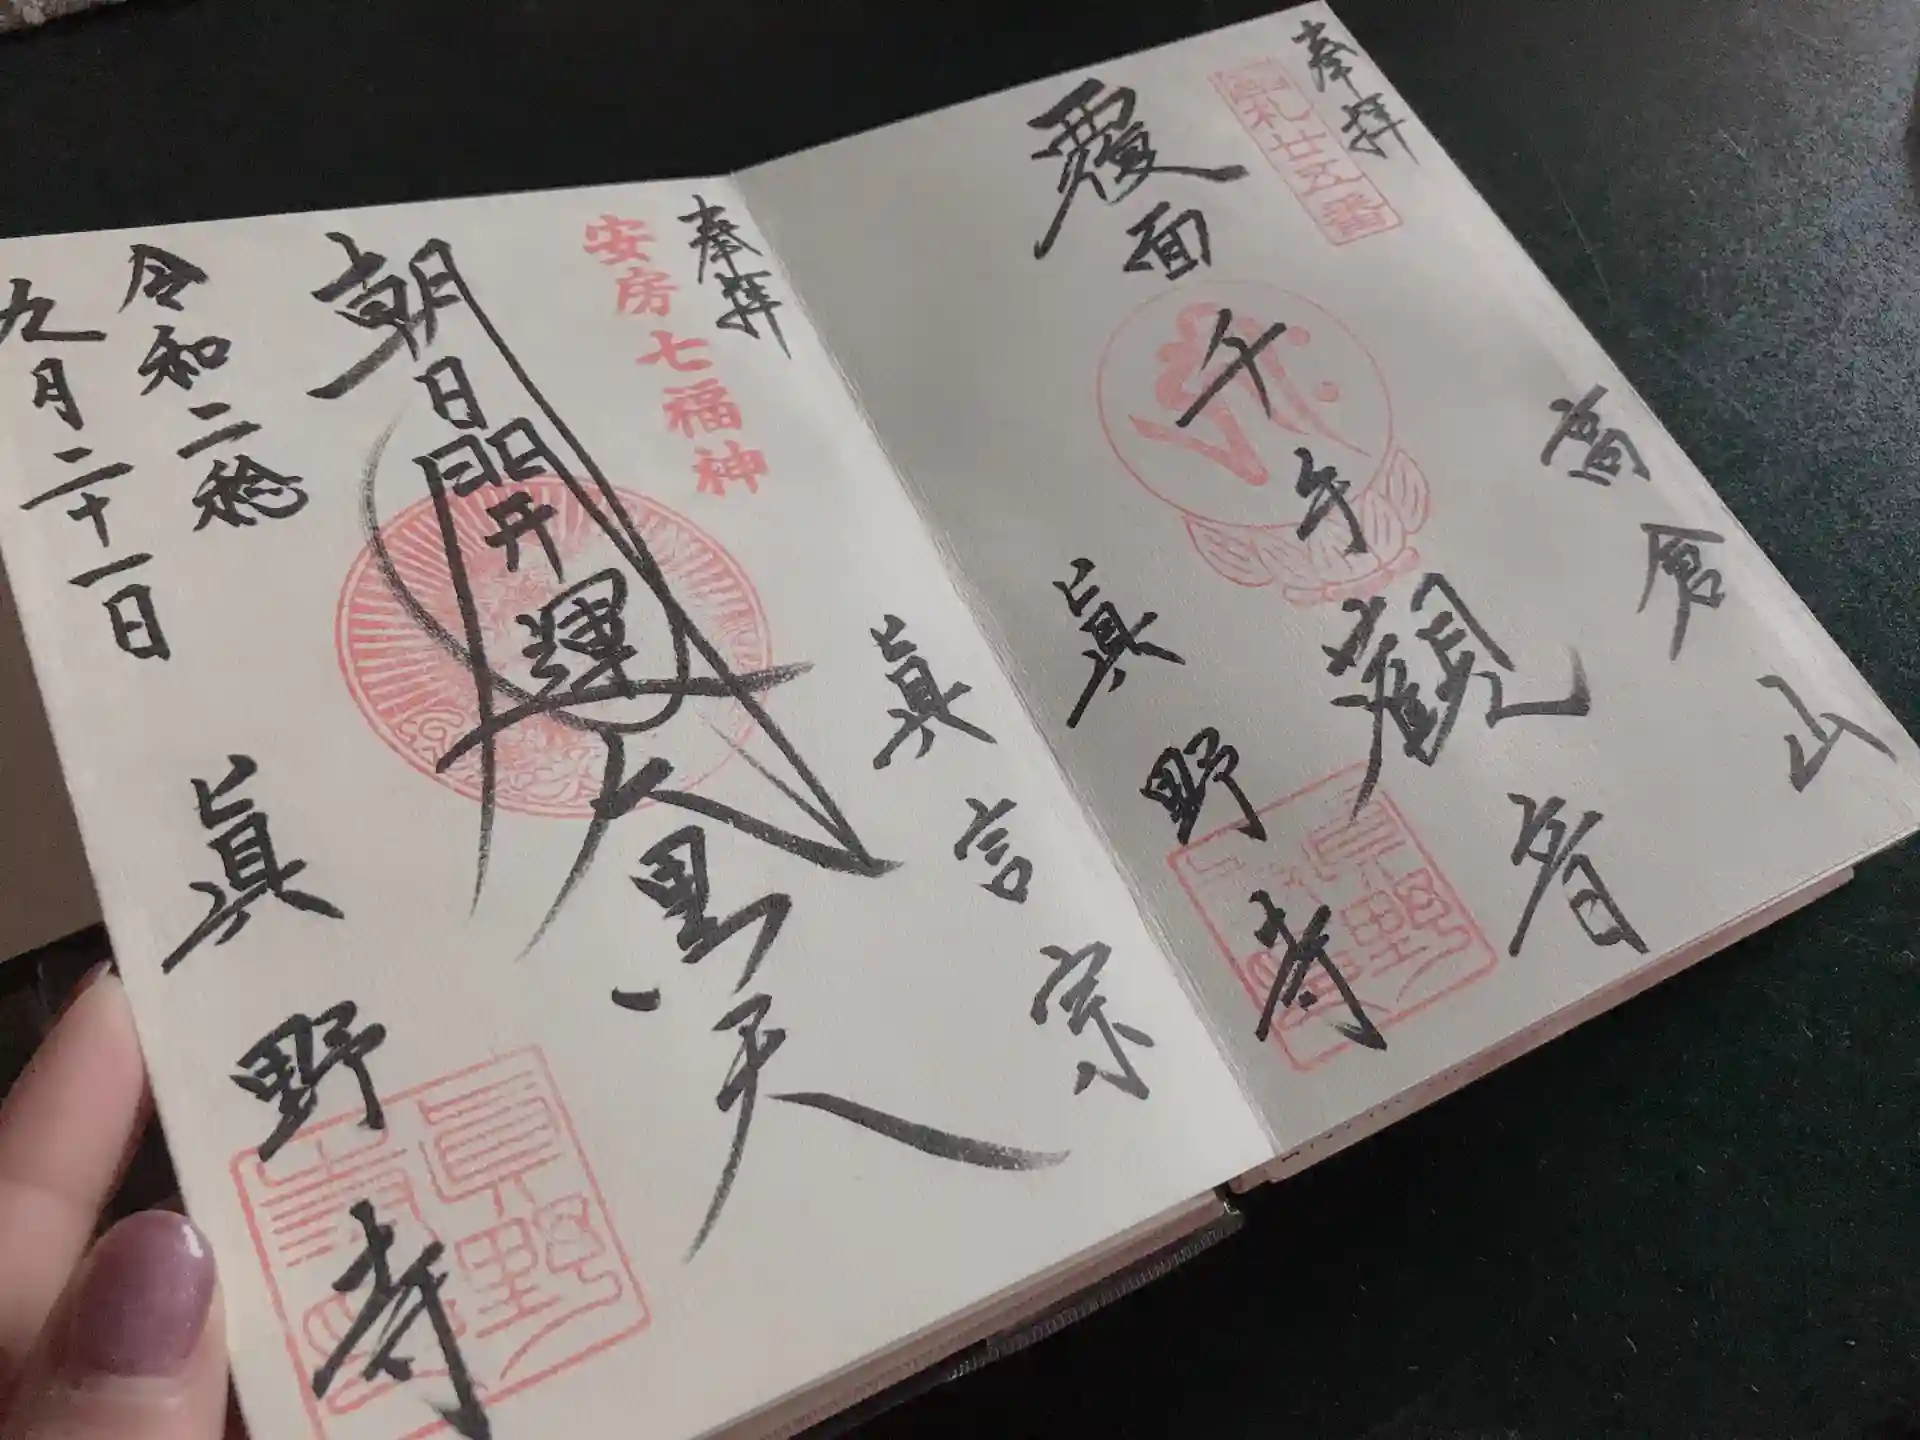 奉拝
札廿五番
高倉山
覆面千手観音
眞野寺
奉拝
安房七福神
眞言宗
朝日開運大黒天
令和二稔
九月二十一日
眞野寺